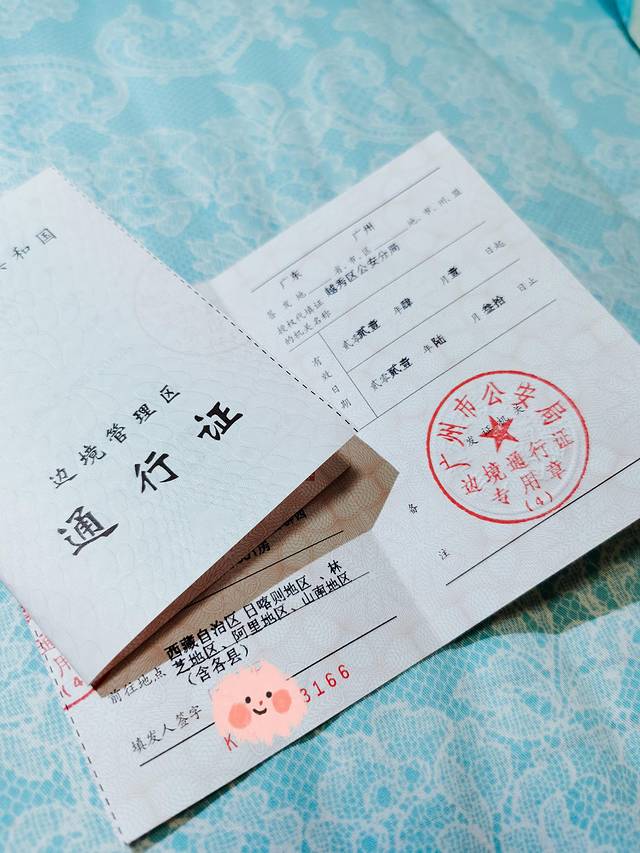 和国
边境管理区
通行证
广东 省、市、区 广州 地、市、州、盟
签发地
授权代填证的机关名称 越秀区公安分局
有效日期
贰零贰壹 年肆 月壹 日起
贰零贰壹 年陆 月叁拾 日止
广州市公安局
发证机关
边境通行证
专用章
(4)
备
注
房
前往地点
西藏自治区 日喀则地区、林
芝地区、阿里地区、山南地区
(含各县)
填发人签字
K
3166
通
用
(4